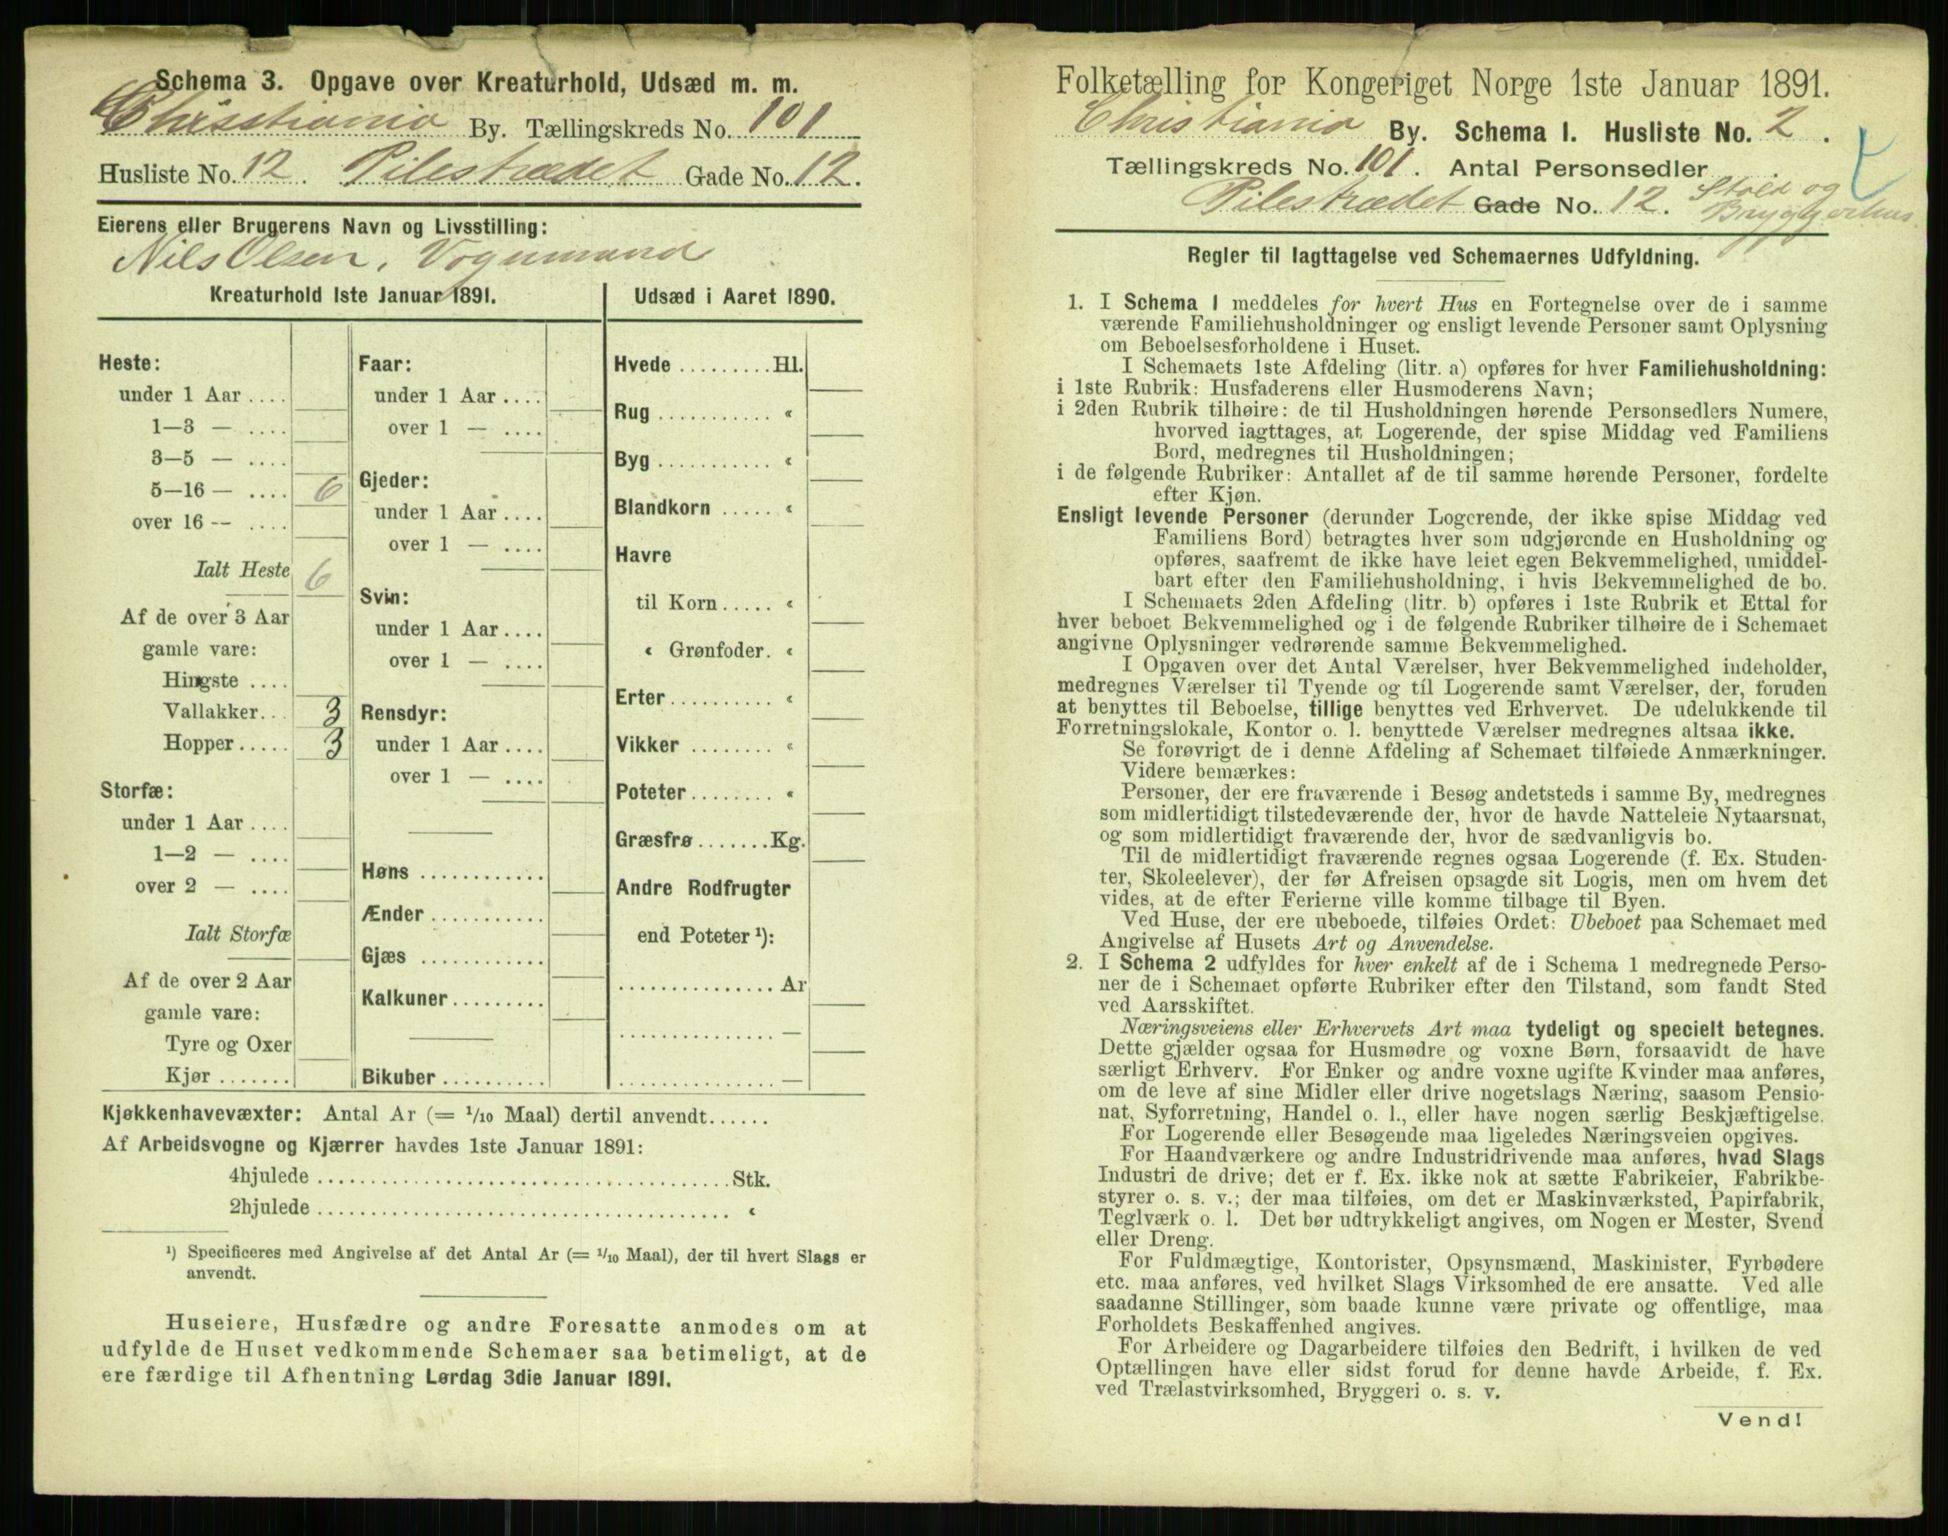 Schema 3. Opgave over Kreaturhold, Udsæd m. m.
Christiania By. Tællingskreds No. 101
Husliste No. 12. Pilestrædet Gade No. 12.
Eierens eller Brugerens Navn og Livsstilling:
Nils Olsen, Vognmand
Kreaturhold 1ste Januar 1891.
Heste:
under 1 Aar ....
1—3 — ....
3—5 — ....
5—16 — .... 6
over 16 -- ....
Ialt Heste 6
Af de over 3 Aar
gamle vare:
Hingste ....
Vallakker... 3
Hopper..... 3
Storfæ:
under 1 Aar ....
1—2 — ....
over 2 — ....
Ialt Storfæ
Af de over 2 Aar
gamle vare:
Tyre og Oxer
Kjør .......
Faar:
under 1 Aar ....
over 1 — ....
Gjeder:
under 1 Aar ....
over 1 — ....
Svin:
under 1 Aar ....
over 1 — ....
Rensdyr:
under 1 Aar ....
over 1 — ....
Høns ............
Ænder ...........
Gjæs ............
Kalkuner.........
Bikuber ..........
Udsæd i Aaret 1890.
Hvede .........Hl.
Rug ........... «
Byg ........... «
Blandkorn ..... «
Havre
til Korn ..... «
« Grønfoder. «
Erter.......... «
Vikker ........ «
Poteter........ «
Græsfrø .......Kg.
Andre Rodfrugter
end Poteter ¹):
............... Ar
............... —
............... —
Kjøkkenhavevæxter: Antal Ar (= 1/10 Maal) dertil anvendt......
Af Arbeidsvogne og Kjærrer havdes 1ste Januar 1891:
4hjulede ........................................ Stk.
2hjulede ........................................ «
¹) Specificeres med Angivelse af det Antal Ar (= 1/10 Maal), der til hvert Slags er
anvendt.
Huseiere, Husfædre og andre Foresatte anmodes om at
udfylde de Huset vedkommende Schemaer saa betimeligt, at de
ere færdige til Afhentning Lørdag 3die Januar 1891.
Folketælling for Kongeriget Norge 1ste Januar 1891.
Christiania By. Schema 1. Husliste No. 2.
Tællingskreds No. 101. Antal Personsedler
Pilestrædet Gade No. 12. Stald og
Bryggerhus
Regler til Iagttagelse ved Schemaernes Udfyldning.
1. I Schema 1 meddeles for hvert Hus en Fortegnelse over de i samme
værende Familiehusholdninger og ensligt levende Personer samt Oplysning
om Beboelsesforholdene i Huset.
I Schemaets 1ste Afdeling (litr. a) opføres for hver Familiehusholdning:
i 1ste Rubrik: Husfaderens eller Husmoderens Navn;
i 2den Rubrik tilhøire: de til Husholdningen hørende Personsedlers Numere,
hvorved iagttages, at Logerende, der spise Middag ved Familiens
Bord, medregnes til Husholdningen;
i de følgende Rubriker: Antallet af de til samme hørende Personer, fordelte
efter Kjøn.
Ensligt levende Personer (derunder Logerende, der ikke spise Middag ved
Familiens Bord) betragtes hver som udgjørende en Husholdning og
opføres, saafremt de ikke have leiet egen Bekvemmelighed, umiddel-
bart efter den Familiehusholdning, i hvis Bekvemmelighed de bo.
I Schemaets 2den Afdeling (litr. b) opføres i 1ste Rubrik et Ettal for
hver beboet Bekvemmelighed og i de følgende Rubriker tilhøire de i Schemaet
angivne Oplysninger vedrørende samme Bekvemmelighed.
I Opgaven over det Antal Værelser, hver Bekvemmelighed indeholder,
medregnes Værelser til Tyende og til Logerende samt Værelser, der, foruden
at benyttes til Beboelse, tillige benyttes ved Erhvervet. De udelukkende til
Forretningslokale, Kontor o. l. benyttede Værelser medregnes altsaa ikke.
Se forøvrigt de i denne Afdeling af Schemaet tilføiede Anmærkninger.
Videre bemærkes:
Personer, der ere fraværende i Besøg andetsteds i samme By, medregnes
som midlertidigt tilstedeværende der, hvor de havde Natteleie Nytaarsnat,
og som midlertidigt fraværende der, hvor de sædvanligvis bo.
Til de midlertidigt fraværende regnes ogsaa Logerende (f. Ex. Studen-
ter, Skoleelever), der før Afreisen opsagde sit Logis, men om hvem det
vides, at de efter Ferierne ville komme tilbage til Byen.
Ved Huse, der ere ubeboede, tilføies Ordet: Ubeboet paa Schemaet med
Angivelse af Husets Art og Anvendelse.
2. I Schema 2 udfyldes for hver enkelt af de i Schema 1 medregnede Perso-
ner de i Schemaet opførte Rubriker efter den Tilstand, som fandt Sted
ved Aarsskiftet.
Næringsveiens eller Erhvervets Art maa tydeligt og specielt betegnes.
Dette gjælder ogsaa for Husmødre og voxne Børn, forsaavidt de have
særligt Erhverv. For Enker og andre voxne ugifte Kvinder maa anføres,
om de leve af sine Midler eller drive nogetslags Næring, saasom Pensio-
nat, Syforretning, Handel o. l., eller have nogen særlig Beskjæftigelse.
For Logerende eller Besøgende maa ligeledes Næringsveien opgives.
For Haandværkere og andre Industridrivende maa anføres, hvad Slags
Industri de drive; det er f. Ex. ikke nok at sætte Fabrikeier, Fabrikbe-
styrer o. s. v.; der maa tilføies, om det er Maskinværksted, Papirfabrik,
Teglværk o. l. Det bør udtrykkeligt angives, om Nogen er Mester, Svend
eller Dreng.
For Fuldmægtige, Kontorister, Opsynsmænd, Maskinister, Fyrbødere
etc. maa anføres, ved hvilket Slags Virksomhed de ere ansatte. Ved alle
saadanne Stillinger, som baade kunne være private og offentlige, maa
Forholdets Beskaffenhed angives.
For Arbeidere og Dagarbeidere tilføies den Bedrift, i hvilken de ved
Optællingen have eller sidst forud for denne havde Arbeide, f. Ex.
ved Trælastvirksomhed, Bryggeri o. s. v.
Vend!